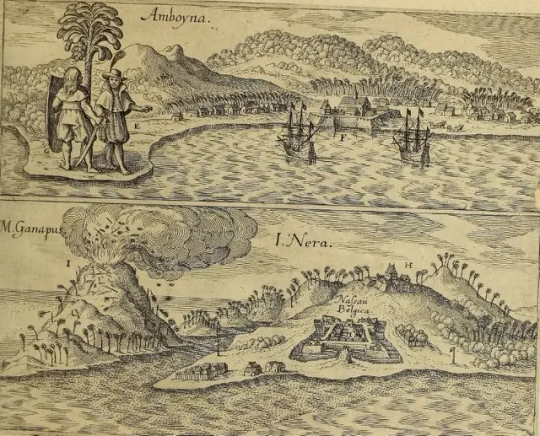 Amboyna.
E
F
M. Ganapus.
I. Nera.
I
H
Naſsau
Belgica